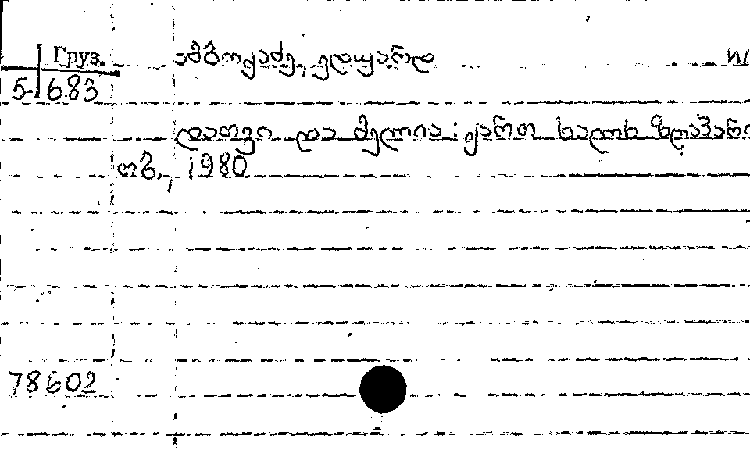 Груз.
ამბოკაძე, ედუარდ
5 683
დათვი და მელია: ქართ. ხალხ. ზღაპარი
თბ., 1980
78602